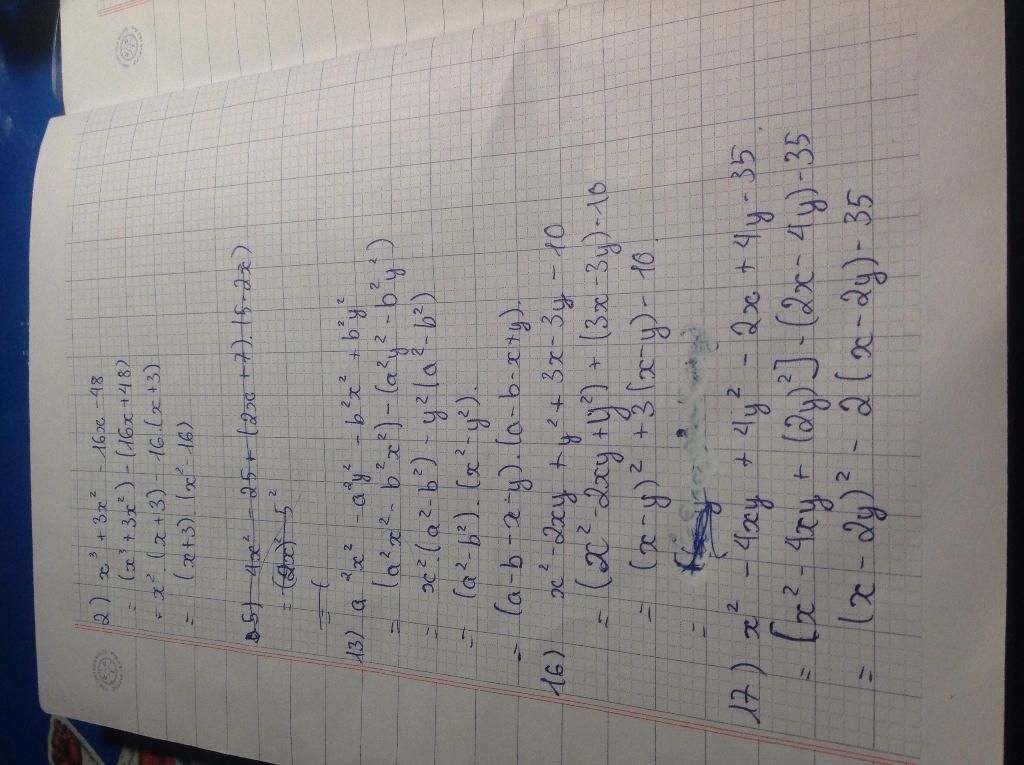 2) x³ + 3x² - 16x - 48
= (x³ + 3x²) - (16x + 48)
= x² · (x + 3) - 16 · (x + 3)
= (x + 3) · (x² - 16)
5) 4x² - 25 + (2x + 7) · (5 - 2x)
= (2x)² 5²
= (
13) a²x² - a²y² - b²x² + b²y²
= (a²x² - b²x²) - (a²y² - b²y²)
= x² · (a² - b²) - y² (a² - b²)
= (a² - b²) · (x² - y²).
= (a - b - x - y) · (a - b - x + y).
16) x² - 2xy + y² + 3x - 3y - 10
= (x² - 2xy + y²) + (3x - 3y) - 10
= (x - y)² + 3 (x - y) - 10.
=
17) x² - 4xy + 4y² - 2x + 4y - 35
= [x² - 4xy + (2y)²] - (2x - 4y) - 35
= (x - 2y)² - 2 (x - 2y) - 35